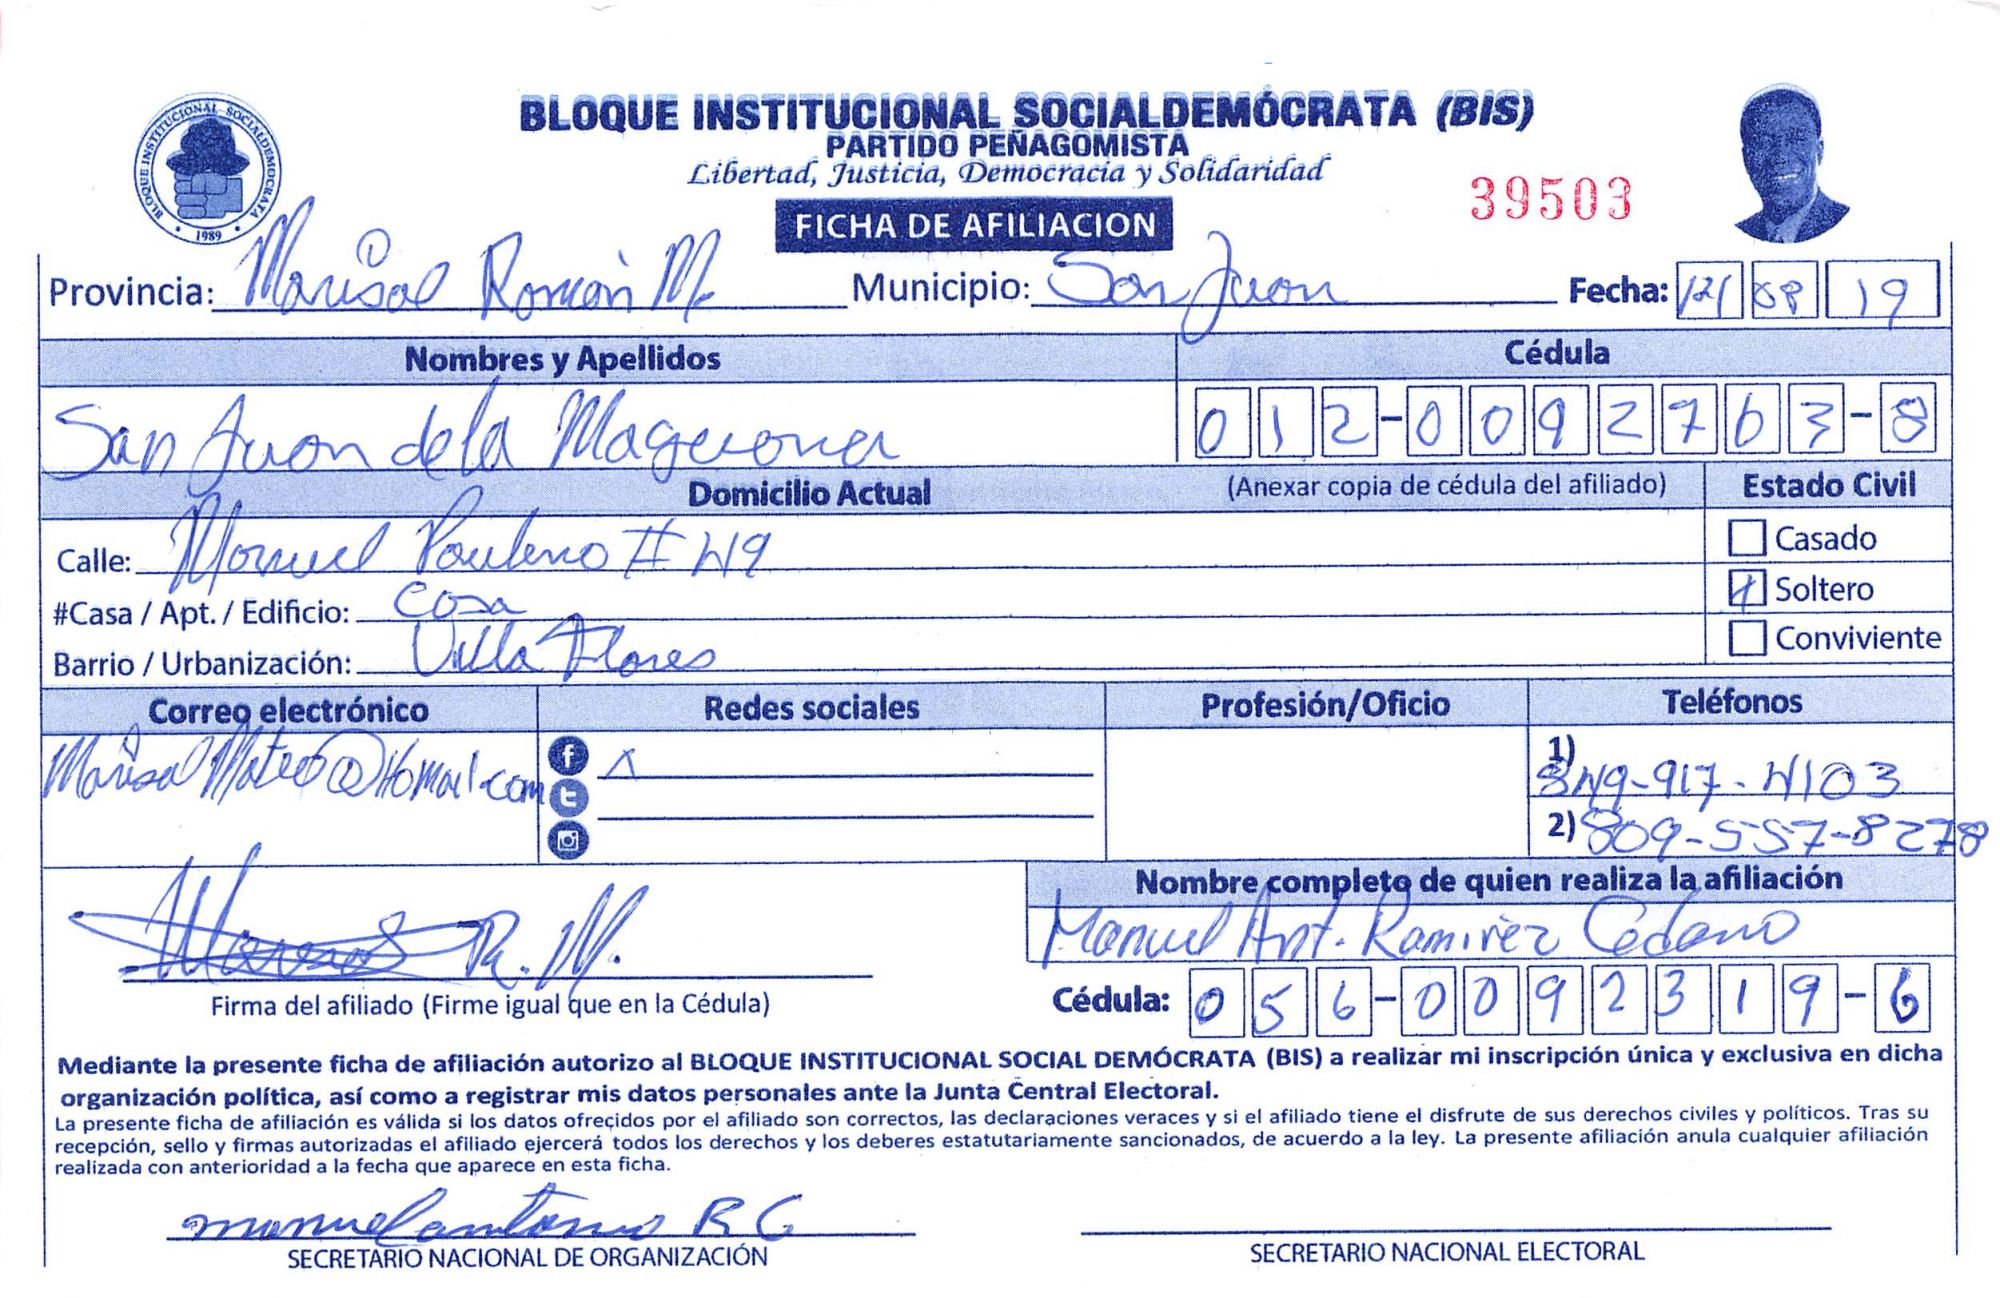 BLOQUE INSTITUCIONAL SOCIALDEMÓCRATA (BIS)
PARTIDO PEÑAGOMISTA
Libertad, Justicia, Democracia y Solidaridad
BLOQUE INSTITUCIONAL SOCIALDEMOCRATA
1989
39503
FICHA DE AFILIACION
Provincia: Marisol Román M. Municipio: San Juan Fecha: 12 08 19
Nombres y Apellidos Cédula
San Juan de la Maguana 012-0092763-8
Domicilio Actual (Anexar copia de cédula del afiliado) Estado Civil
Calle: Manuel Paulino # 49 Casado
#Casa / Apt. / Edificio: Casa Soltero
Barrio / Urbanización: Villa Flores Conviviente
Correo electrónico Redes sociales Profesión/Oficio Teléfonos
Marisol Mateo@Homail.com X 1) 849-917-4103
2) 809-557-8278
Nombre completo de quien realiza la afiliación
R. M. Manuel Ant. Ramirez Cedano
Firma del afiliado (Firme igual que en la Cédula) Cédula: 056-0092319-6
Mediante la presente ficha de afiliación autorizo al BLOQUE INSTITUCIONAL SOCIAL DEMÓCRATA (BIS) a realizar mi inscripción única y exclusiva en dicha
organización política, así como a registrar mis datos personales ante la Junta Central Electoral.
La presente ficha de afiliación es válida si los datos ofrecidos por el afiliado son correctos, las declaraciones veraces y si el afiliado tiene el disfrute de sus derechos civiles y políticos. Tras su
recepción, sello y firmas autorizadas el afiliado ejercerá todos los derechos y los deberes estatutariamente sancionados, de acuerdo a la ley. La presente afiliación anula cualquier afiliación
realizada con anterioridad a la fecha que aparece en esta ficha.
manuel antonio R C
SECRETARIO NACIONAL DE ORGANIZACIÓN SECRETARIO NACIONAL ELECTORAL